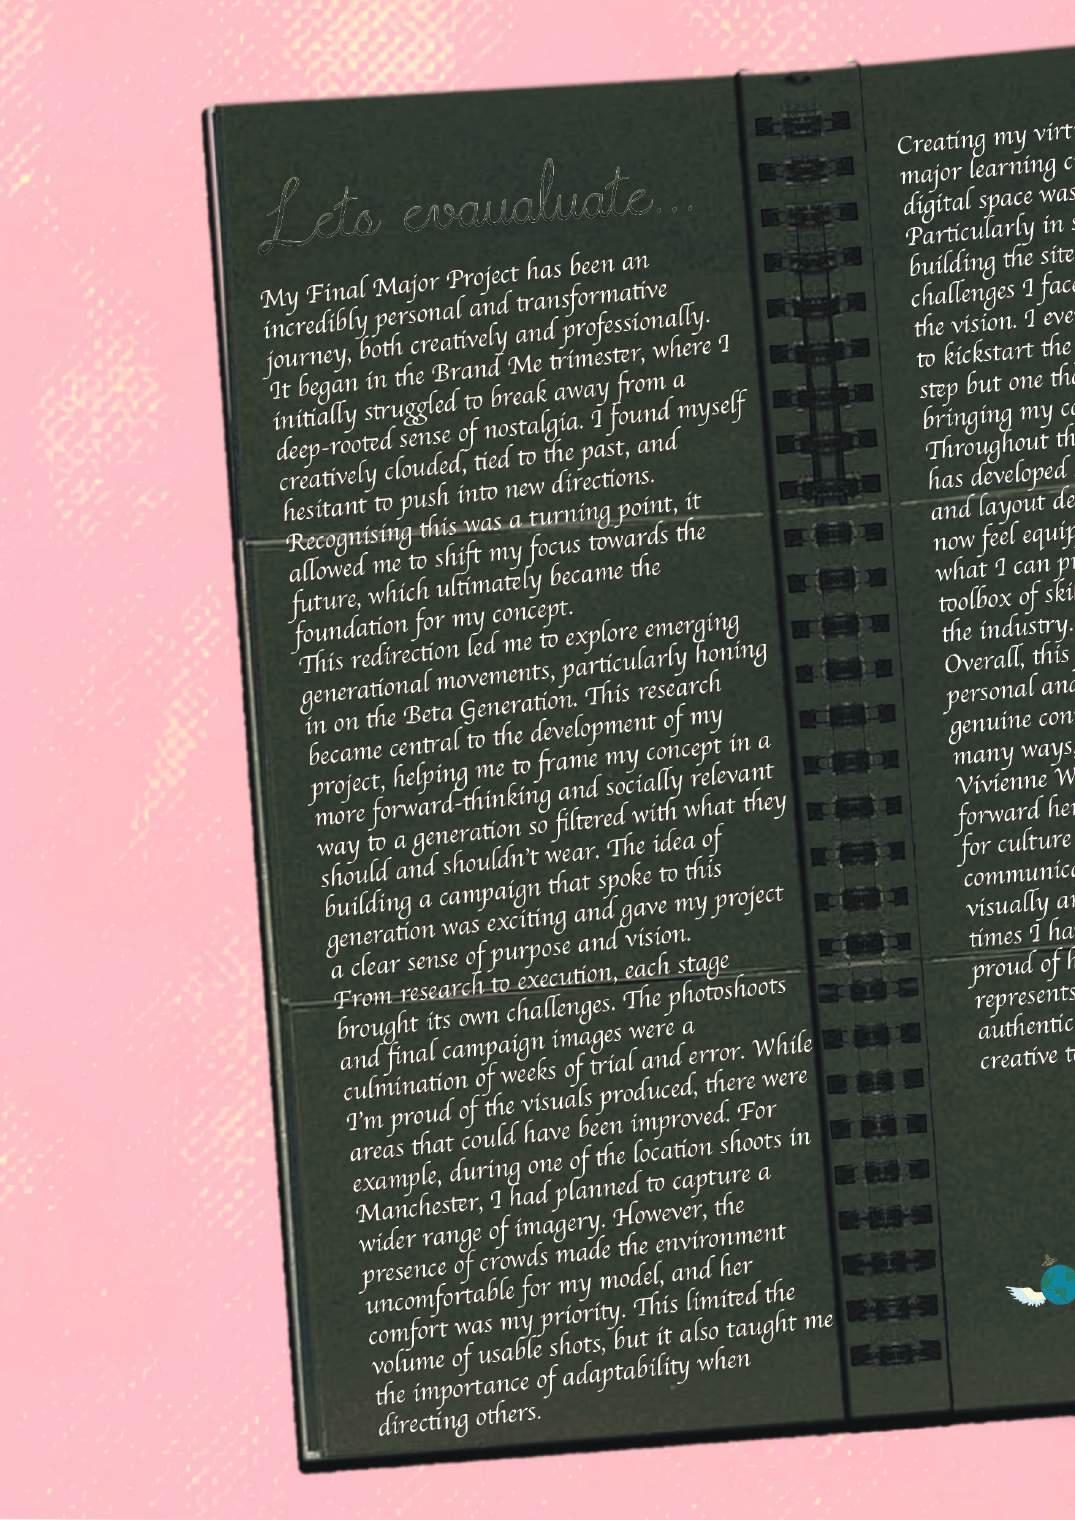 Lets evaualuate...
My Final Major Project has been an
incredibly personal and transformative
journey, both creatively and professionally.
It began in the Brand Me trimester, where I
initially struggled to break away from a
deep-rooted sense of nostalgia. I found myself
creatively clouded, tied to the past, and
hesitant to push into new directions.
Recognising this was a turning point, it
allowed me to shift my focus towards the
future, which ultimately became the
foundation for my concept.
This redirection led me to explore emerging
generational movements, particularly honing
in on the Beta Generation. This research
became central to the development of my
project, helping me to frame my concept in a
more forward-thinking and socially relevant
way to a generation so filtered with what they
should and shouldn't wear. The idea of
building a campaign that spoke to this
generation was exciting and gave my project
a clear sense of purpose and vision.
From research to execution, each stage
brought its own challenges. The photoshoots
and final campaign images were a
culmination of weeks of trial and error. While
I'm proud of the visuals produced, there were
areas that could have been improved. For
example, during one of the location shoots in
Manchester, I had planned to capture a
wider range of imagery. However, the
presence of crowds made the environment
uncomfortable for my model, and her
comfort was my priority. This limited the
volume of usable shots, but it also taught me
the importance of adaptability when
directing others.
Creating my virt
major learning c
digital space was
Particularly in s
building the site
challenges I face
the vision. I eve
to kickstart the
step but one tha
bringing my co
Throughout th
has developed
and layout de
now feel equip
what I can pr
toolbox of skil
the industry.
Overall, this
personal and
genuine con
many ways,
Vivienne W
forward her
for culture
communica
visually an
times I ha
proud of h
represents
authentic
creative to